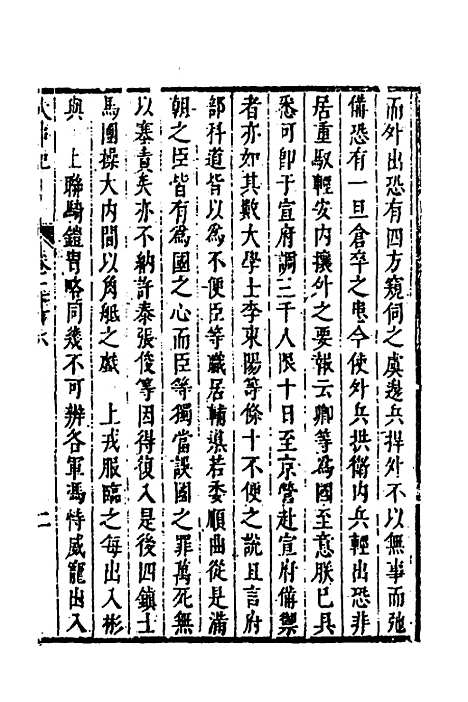 而外出恐有四方窺伺之虞邊兵捍外不以無事而弛
備恐有一旦倉卒之患今使外兵拱衛內兵輕出恐非
居重馭輕安內攘外之要報云卿等為國至意朕已具
悉可即于宣府調三千人限十日至京營赴宣府備禦
者亦如其數大學士李東陽等條十不便之說且言府
部科道皆以為不便臣等職居輔導若委順曲從是滿
朝之臣皆有為國之心而臣等獨當誤國之罪萬死無
以塞責矣亦不納許泰張俊等因得復入是後四鎮士
馬團操大內間以角觝之戲　上戎服臨之每出入彬
與　上聯騎鎧冑略同幾不可辨各軍馮恃威寵出入
大事記
二